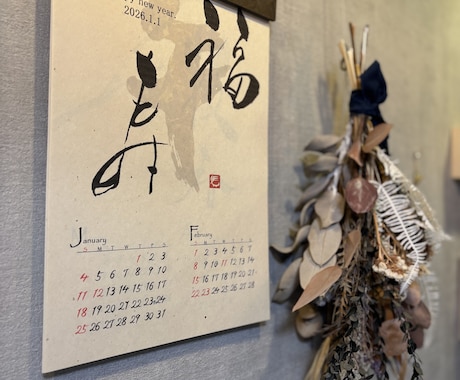 y new year.
2026.1.1
福
January
S M T W T F S
1 2 3
4 5 6 7 8 9 10
11 12 13 14 15 16 17
18 19 20 21 22 23 24
25 26 27 28 29 30 31
February
S M T W T F S
1 2 3 4 5 6 7
8 9 10 11 12 13 14
15 16 17 18 19 20 21
22 23 24 25 26 27 28